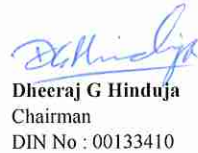 DGHinduja
Dheeraj G Hinduja
Chairman
DIN No : 00133410